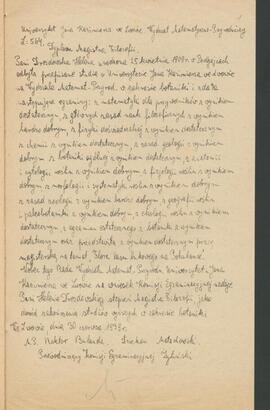 Uniwersytet Jana Kazimierza we Lwowie Wydział Matematyczno-Przyrodniczy
L: 564. Dyplom Magistra Filozofii.
Pani Drozdowska Helena urodzona 25 kwietnia 1909 r. w
odbyła przepisane studia w Uniwersytecie Jana Kazimierza we Lwowie
na Wydziale Matemat. Przyrod. w zakresie botaniki i zdała
następujące egzaminy: z matematyki dla przyrodników z wynikiem
dostatecznym, z głównych zasad nauk filozoficznych z wynikiem
bardzo dobrym, z fizyki doświadczalnej z wynikiem dostatecznym
z chemii z wynikiem dostatecznym, z zasad geologii z wynikiem
dobrym, z botaniki ogólnej z wynikiem dostatecznym, z anatomii
i cytologii roślin z wynikiem dobrym, z fizjologii roślin z wynikiem
dobrym, z morfologii i systematyki roślin z wynikiem dobrym
z zasad zoologii z wynikiem bardzo dobrym, z geografii roślin
i paleobotaniki z wynikiem dobrym, z ekologii roślin z wynikiem
dostatecznym, z egzaminu ostatecznego z botaniki z wynikiem
dostatecznym oraz przedstawiła z wynikiem dostatecznym pracę
magisterską na temat
Wobec tego Rada Wydziału Matemat. Przyrodn. Uniwersytetu Jana
Kazimierza we Lwowie na wniosek Komisji Egzaminacyjnej nadaje
Pani Helenie Drozdowskiej stopień Magistra Filozofii jako
dowód ukończenia studiów wyższych w zakresie botaniki
We Lwowie dnia 30 czerwca 193
Rektor Bulanda.
Przewodniczący Komisji Egzaminacyjnej Żyliński